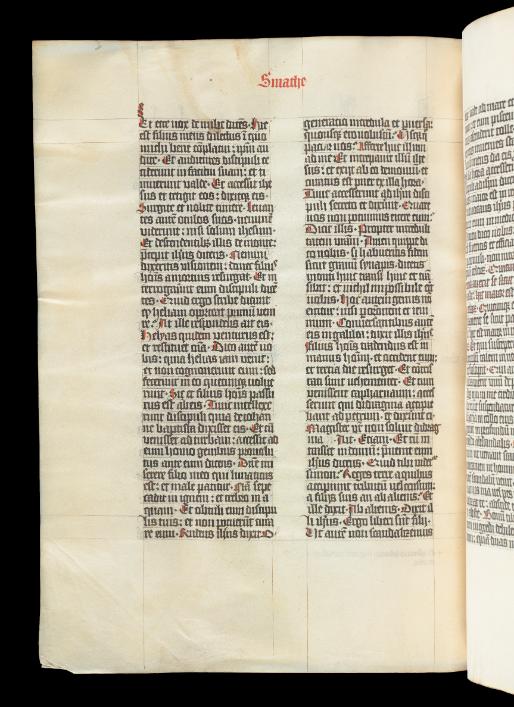 Smathe
Et ecce vox de nube dicēs. Hic
est filius meus dilectus ī quo
michi bene cōplacui: ipm̄ au
dite. Et audientes discipuli ce
ciderunt in faciem suam: et ti
muerunt valde. Et accessit ihe
sus et tetigit eos: dixitqꝫ eis.
Surgite et nolite timere. Levan
tes autē oculos suos: neminē
viderunt: nisi solum ihesum.
Et descendentibꝫ illis de monte:
precepit ihesus dicens. Nemini
dixeritis visionem: donec filius
hoīs a mortuis resurgat. Et in
terrogaverūt eum discipuli dicē
tes. Quid ergo scribe dicunt
qꝫ helyam oporteat primū veni
re. At ille respondens ait eis.
Helyas quidem venturus est:
et restituet oīa. Dico autē vo
bis: quia helias iam venit:
et non cognoverunt eum: sed
fecerunt in eo quecūqꝫ volue
runt. Sic et filius hoīs passu
rus est ab eis. Tunc intellexe
runt discipuli quia de iohan
ne baptista dixisset eis. Et cū
venisset ad turbam: accessit ad
eum homo genibus provolu
tus ante eum dicens. Dn̄e mi
serere filio meo quia lunaticus
est: et male patitur. Nam sepe
cadit in ignem: et crebro in a
quam. Et obtuli eum discipu
lis tuis: et non potuerūt cura
re eum. Respondens ihesus dixit. O
generatio incredula et perversa:
quousqꝫ ero vobiscum. Usqꝫquo
patiar vos. Afferte huc illum
ad me. Et increpavit illū ihe
sus: et exijt ab eo demonium: et
curatus est puer ex illa hora.
Tunc accesserunt ad ihm̄ disci
puli secreto et dixerūt. Quare
nos non potuimus eicere eum.
Dicit illis. Propter increduli
tatem vr̄am. Amen quippe di
co vobis: si habueritis fidem
sicut granū synapis: dicetis
monti huic transi hinc et trā
sibit: et nichil impossibile erit
vobis. Hoc autem genus nō
eicitur: nisi per orationē et ieiu
nium. Conversantibus autē
eis in galilea: dixit illis ihesus.
Filius hoīs tradendus est in
manus hoīm: et occident eum:
et tertia die resurget. Et cōtris
tati sunt vehementer. Et cum
venissent capharnaum: acces
serunt qui didragma accipie
bant ad petrum: et dixerūt ei.
Magister vr̄ non solvit didrag
ma. Ait. Etiam. Et cū in
trasset in domū: prevenit eum
ihesus dicens. Quid tibi videtur
simon. Reges terre a quibus
accipiunt tributū vel censum:
a filijs suis an ab alienis. Et
ille dixit. Ab alienis. Dixit il
li ihesus. Ergo liberi sunt filij.
Ut autē non scandalizemus